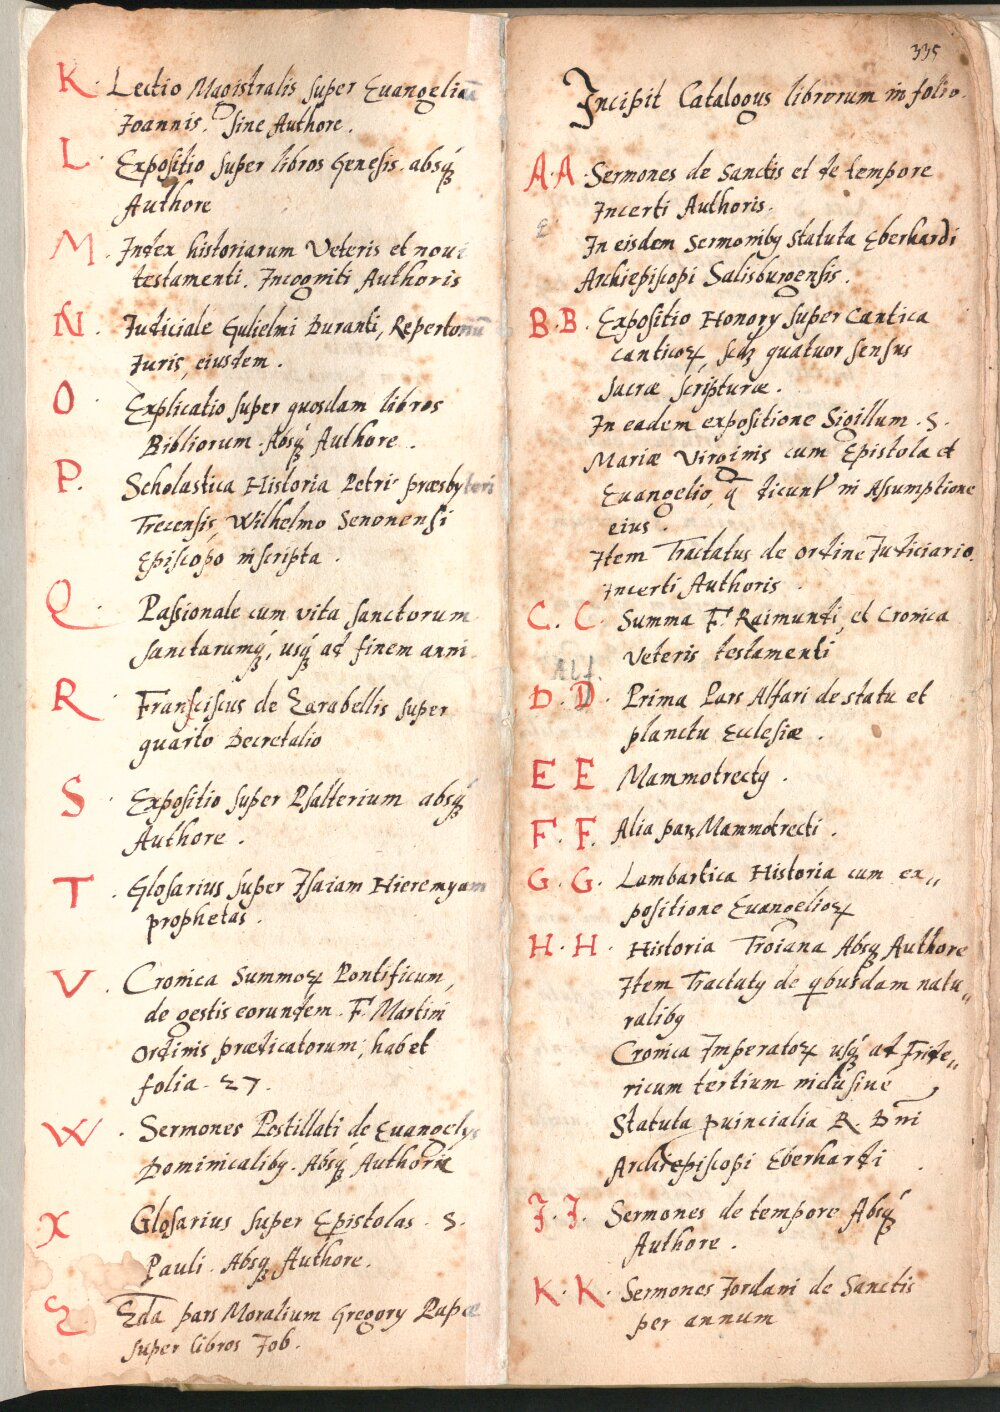 K. Lectio Magistralis super Euangeliū
Joannis. sine Authore.
L. Expositio super libros Genesis. absqꝫ
Authore
M. Index historiarum Veteris et noui
testamenti. Incogniti Authoris
N. Judiciale Gulielmi Duranti, Repertoriū
Juris, eiusdem.
O. Explicatio super quosdam libros
Bibliorum. Absqꝫ Authore.
P. Scholastica Historia Petri præsbyteri
Trecensis, Wilhelmo Senonensi
Episcopo inscripta.
Q. Passionale cum vita sanctorum
sanctarumqꝫ, usqꝫ ad finem anni.
R. Franciscus de Zarabellis super
quarto Decretalio
S. Expositio super Psalterium absqꝫ
Authore.
T. Glosarius super Isaiam Hieremyam
prophetas.
V. Cronica Summoꝝ Pontificum,
de gestis eorundem F. Martini
ordinis prædicatorum, habet
folia. 27.
W. Sermones Postillati de Euangelys
Dominicalibꝫ. Absqꝫ Authore
X Glosarius super Epistolas. S.
Pauli. Absqꝫ Authore.
Z Eda pars Moralium Gregory Papæ
super libros Job.
335
Incipit Catalogus librorum in folio.
A. A. Sermones de Sanctis et de tempore
Incerti Authoris.
In eisdem sermonibꝫ statuta Eberhardi
Archiepiscopi Salisburgensis.
B. B. Expositio Honory super Cantica
canticoꝝ, scdꝫ quatuor sensus
sacræ scripturæ.
In eadem expositione Sigillum. S.
Mariæ Virginis cum Epistola et
Euangelio, q̄ dicunt in Assumptione
eius.
Item Tractatus de ordine Judiciario.
incerti Authoris.
C. C. Summa F. Raimundi, et Cronica
Veteris testamenti
Alf.
D. D. Prima Pars Alfari de statu et
planctu Ecclesiæ.
E E Mammotrectꝫ.
F. F. Alia pars Mammotrecti.
G. G. Lambartica Historia cum ex„
positione Euangelioꝝ
H. H. Historia Troiana Absqꝫ Authore
Item Tractatꝫ de qbusdam natu„
ralibꝫ
Cronica Imperatoꝝ usqꝫ ad Fride„
ricum tertium inclusiue,
Statuta puincialia R. Dn̄i
Archiepiscopi Eberhardi.
J. J. Sermones de tempore Absqꝫ
Authore.
K. K. Sermones Jordani de Sanctis
per annum